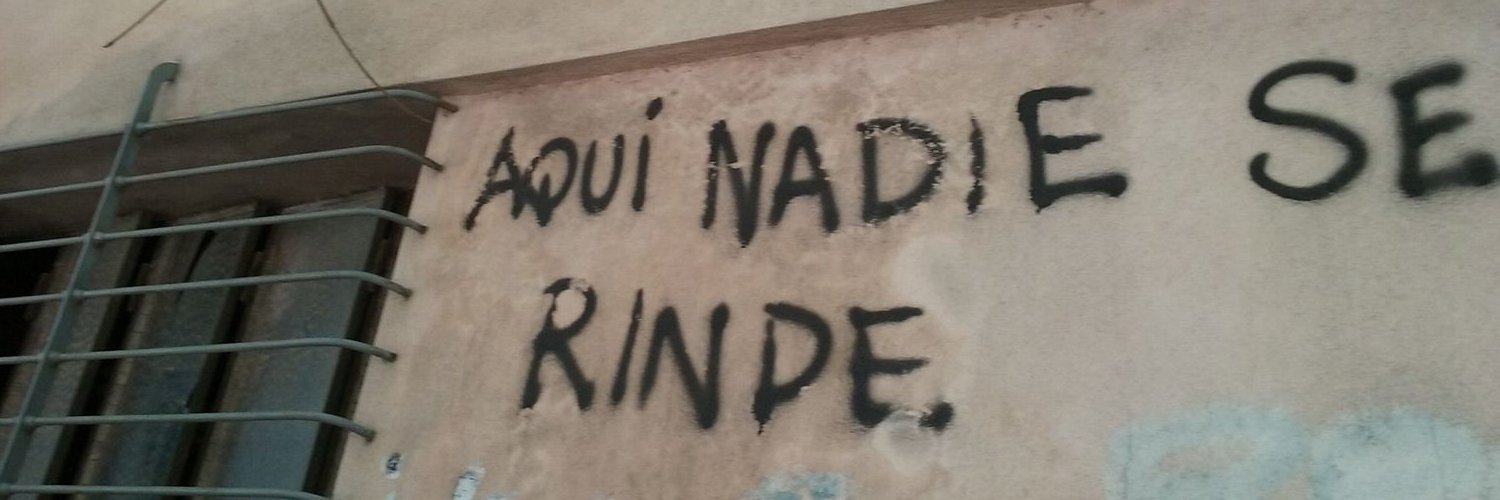 AQUI NADIE SE
RINDE.